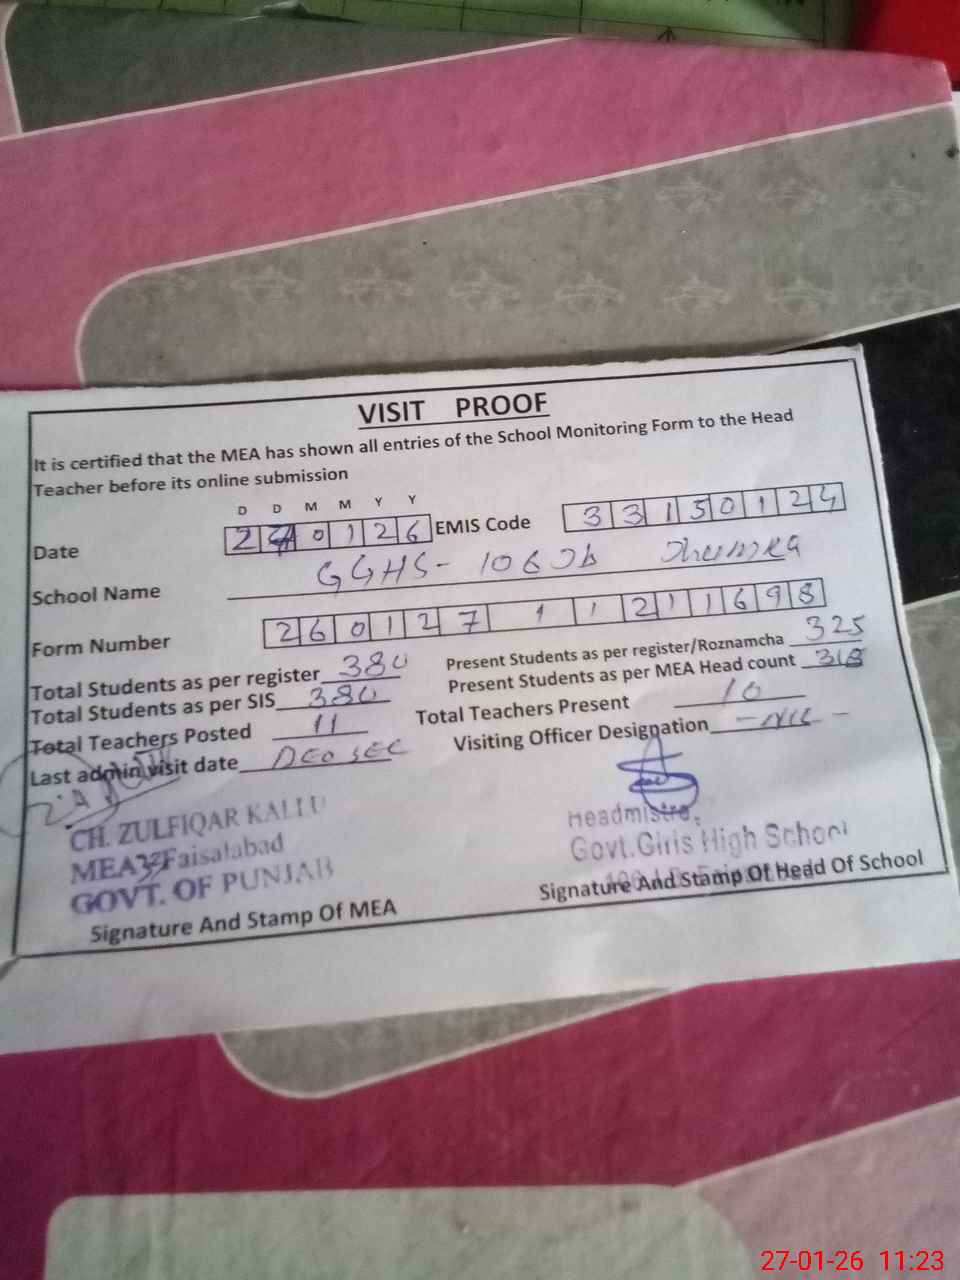 VISIT PROOF
It is certified that the MEA has shown all entries of the School Monitoring Form to the Head
Teacher before its online submission
D D M M Y Y
Date 2 7 0 1 2 6 EMIS Code 3 3 1 5 0 1 2 4
School Name GGHS- 106 Jb
Form Number 2 6 0 1 2 7 1 1 2 1 1 6 9 8
Total Students as per register 380 Present Students as per register/Roznamcha 325
Total Students as per SIS 380 Present Students as per MEA Head count 318
Total Teachers Posted 11 Total Teachers Present 10
Last admin visit date DEO SEC Visiting Officer Designation - NIL -
CH. ZULFIQAR KALLU
MEA 32 Faisalabad
GOVT. OF PUNJAB
Signature And Stamp Of MEA
Headmistre
Govt.Girls High School
Signature And Stamp Of Head Of School
27-01-26 11:23